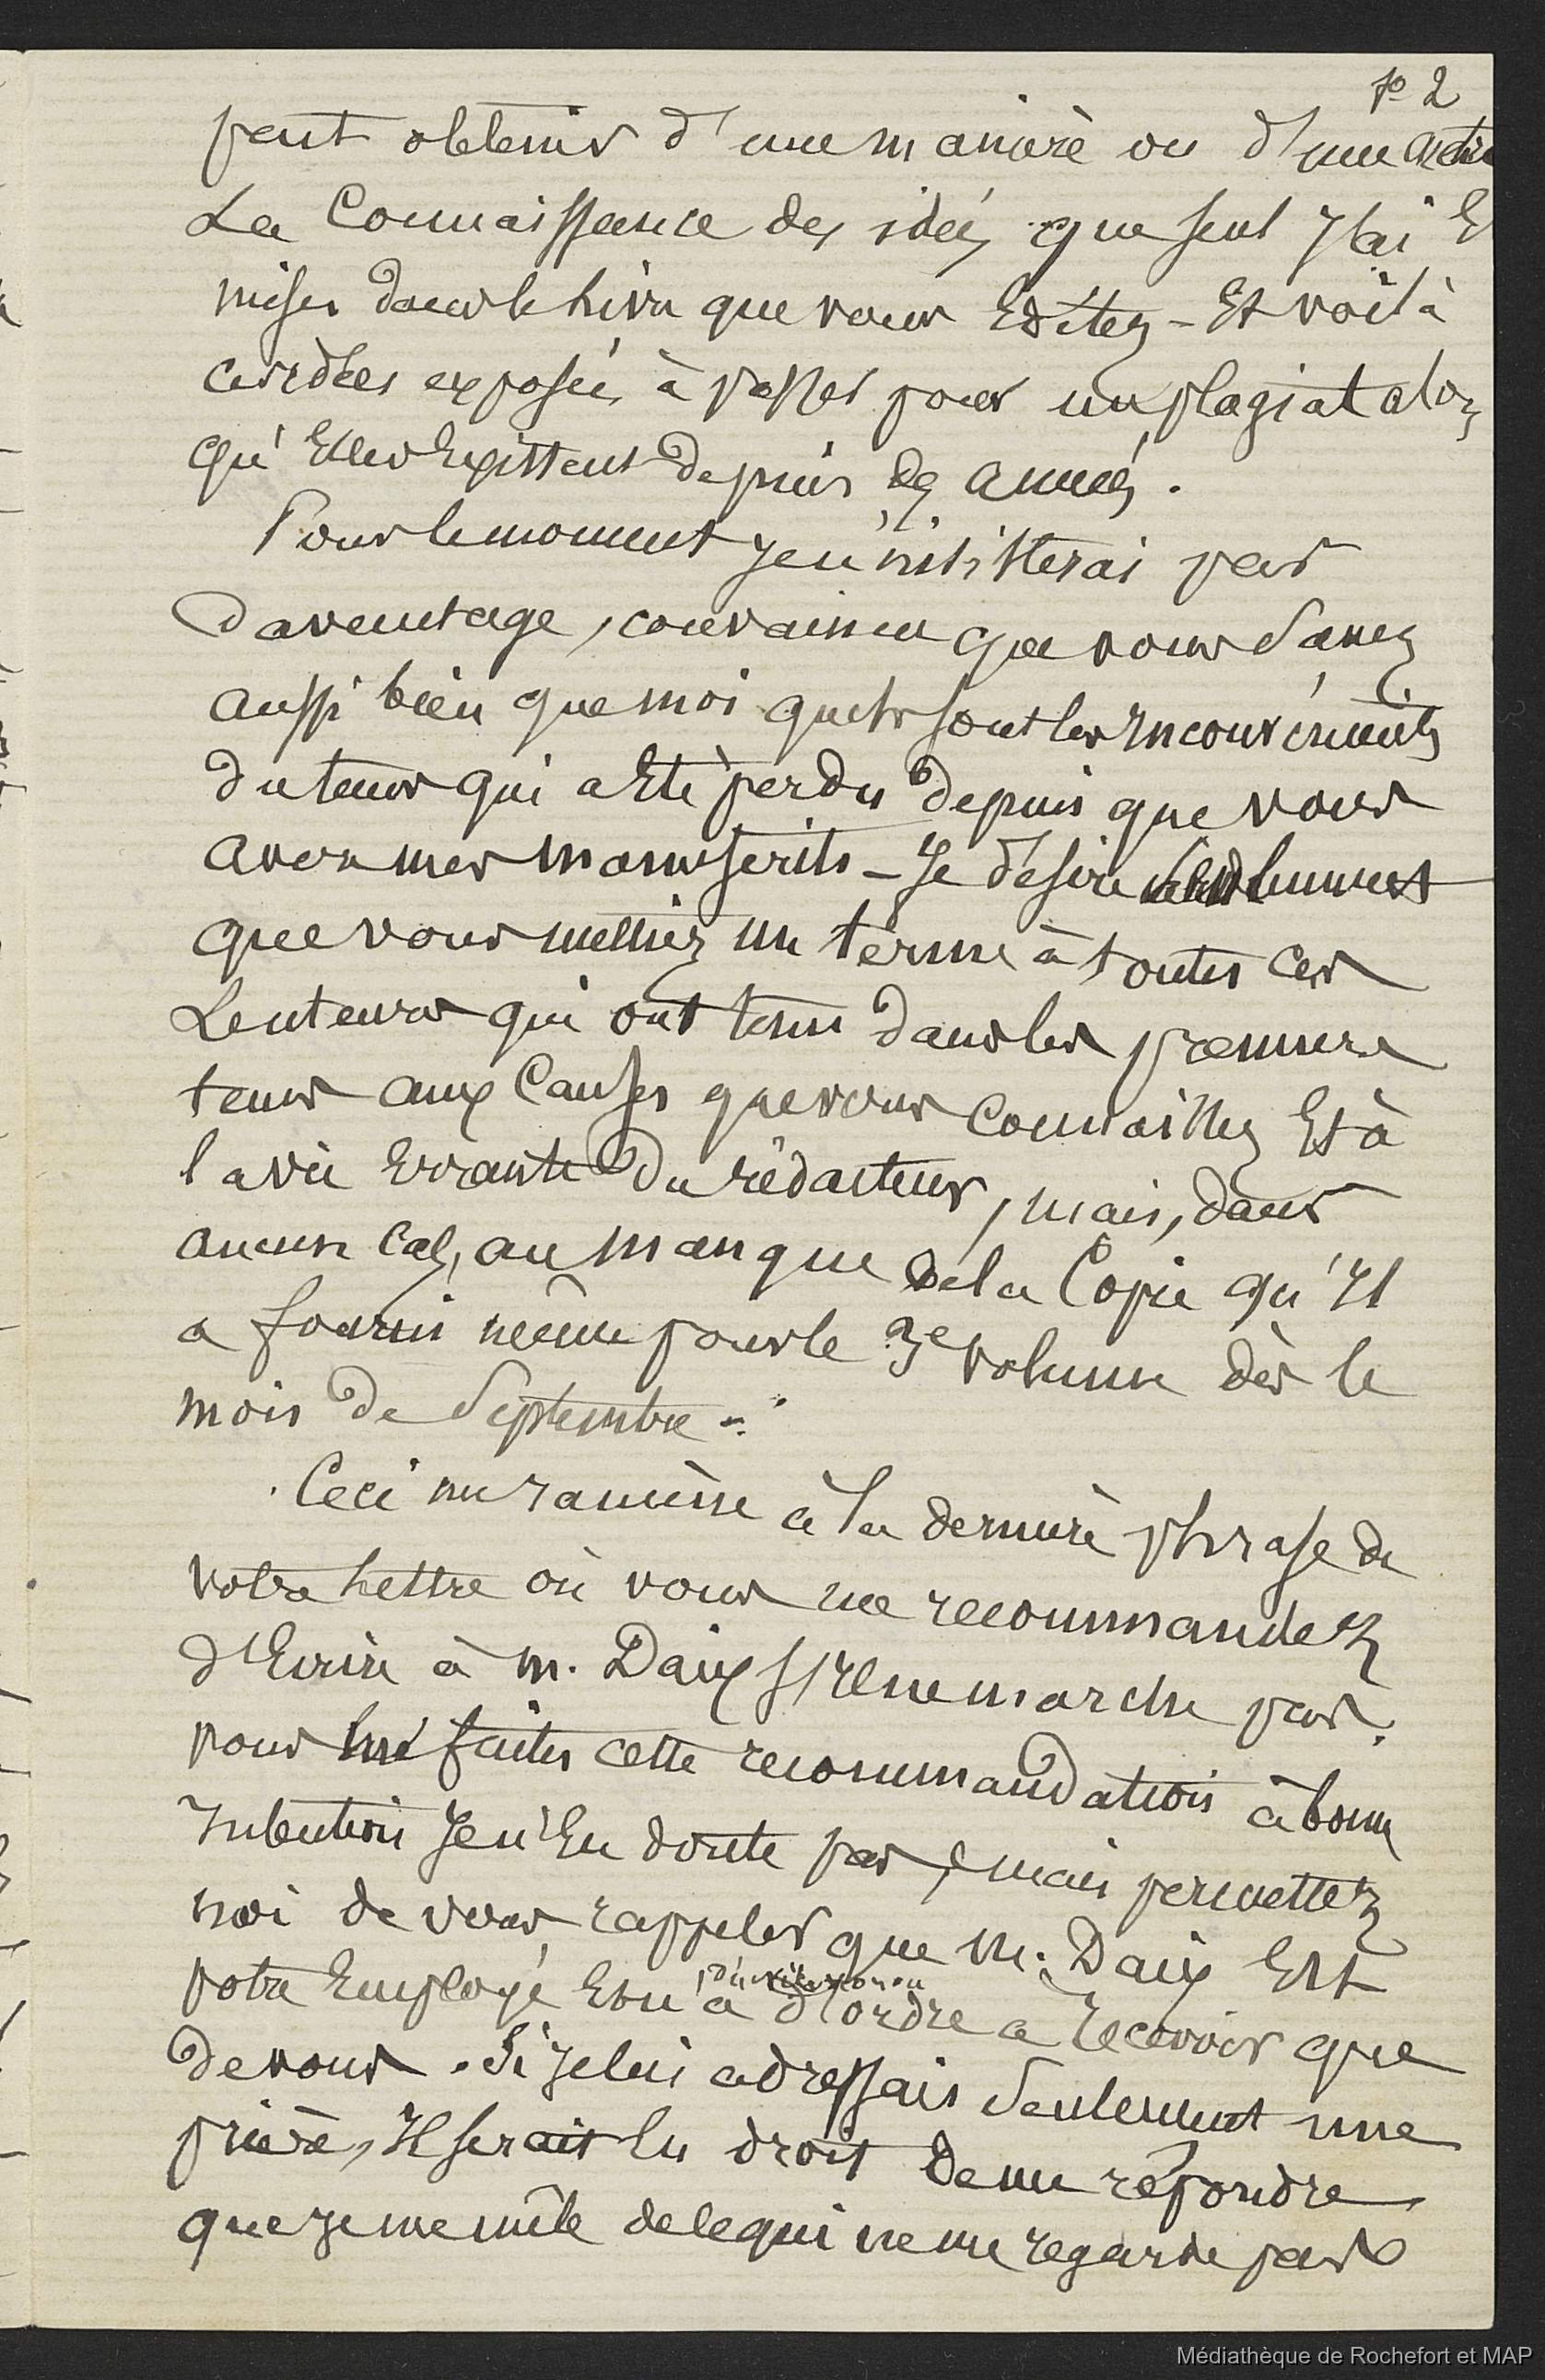 po 2
peut obtenir d'une manière ou d'une autre
La Connaissance des idées que seul J'ai E
mises dans le Livre que vous Editez - Et voilà
ces idées exposées à passer pour un plagiat alors
qu'Elles Existent depuis des années.
Pour le moment je n'insisterai pas
Davantage, convaincu que vous Savez
aussi bien que moi quels sont les Inconvénients
du tems qui a Eté perdu depuis que vous
avez mes manuscrits - Je désire
que vous mettiez un terme à toutes ces
Lenteurs qui ont tenu dans les premiers
tems aux Causes que vous Connaissez Et à
la vie Errante du rédacteur, mais, dans
aucun Cas, au manque de la Copie qu'Il
a fourni même pour le 3e volume dès le
mois de Septembre -
Ceci me ramène à la dernière phrase de
votre Lettre où vous me recommandez
d'Ecrire à M. Daix s'Il ne marche pas.
vous me faites cette recommandation à bonne
Intention Je n'En doute pas, mais permettez
moi de vous rappeler que M. Daix Est
votre Employé Et n'a d'ordre a recevoir que
de vous. Si Je lui adressais Seulement une
prière, Il serait En droit de me répondre
que je me mêle de ce qui ne me regarde pas
Médiathèque de Rochefort et MAP